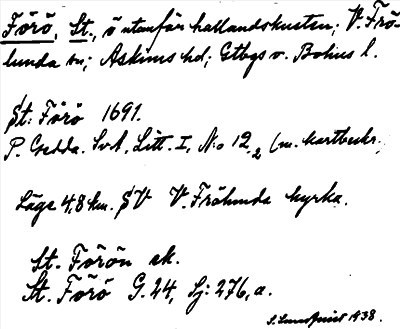 Förö, St., ö utanför hallandskusten; V. Frö-
lunda sn; Askims hd; Gtbgs o. Bohus l.
St: Förö 1691.
P. Gedda. SvA, Litt. I, N:o 12.2 (m. kartbeskr.
Läge 4,8 km. SV V. Frölunda kyrka.
St. Förön ek.
St. Förö G. 24, Sj: 276, a.
S. Lundqvist 1938.